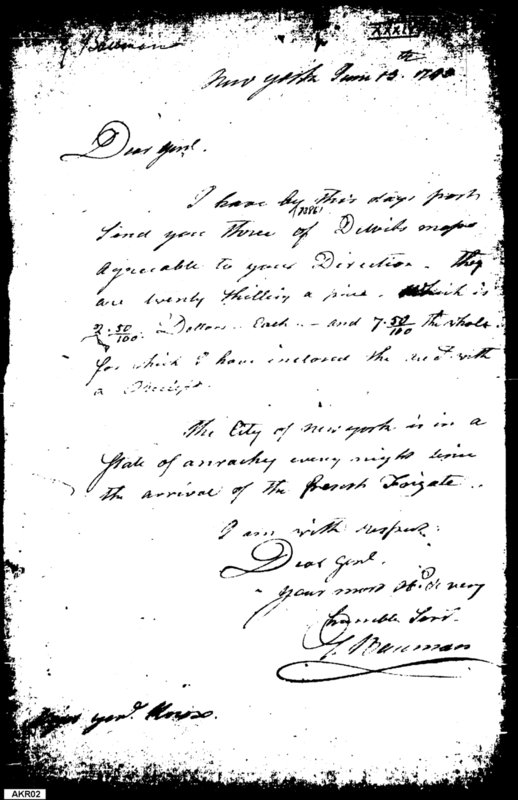 S Bauman
XXXIV
New york June 13th. 1793
Dear Genl.
I have by this days post
(1786)
Send you three of Dewits maps
agreeable to your Direction. they
are twenty Shilling a piece. Which is
2.50/100. Dollars. Each. - and 7.50/100 the whole.
for which I have inclosed the with
a Receipt.
The City of new york is in a
State of anrachy every night since
the arrival of the french Foigate..
I am with respect.
Dear Genl.
your most Ob. & very
humble Servt.
S. Bauman
Major Genl. Knox.
AKR02